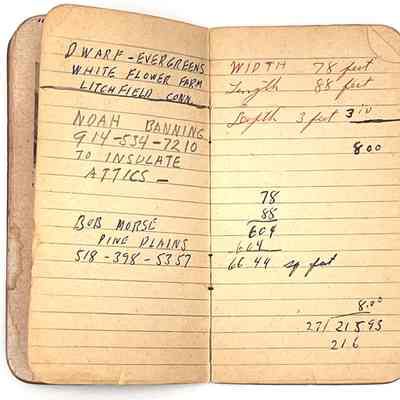 DWARF-EVERGREENS
WHITE FLOWER FARM
LITCHFIELD CONN.
NOAH BANNING
914-534-7210
TO INSULATE
ATTICS —
BOB MORSE
PINE PLAINS
518-398-5357
WIDTH 78 feet
Length 88 feet
Depth 3 feet 3 in
800
78
88
604
604
6644 sq feet
8.00
27/21593
216